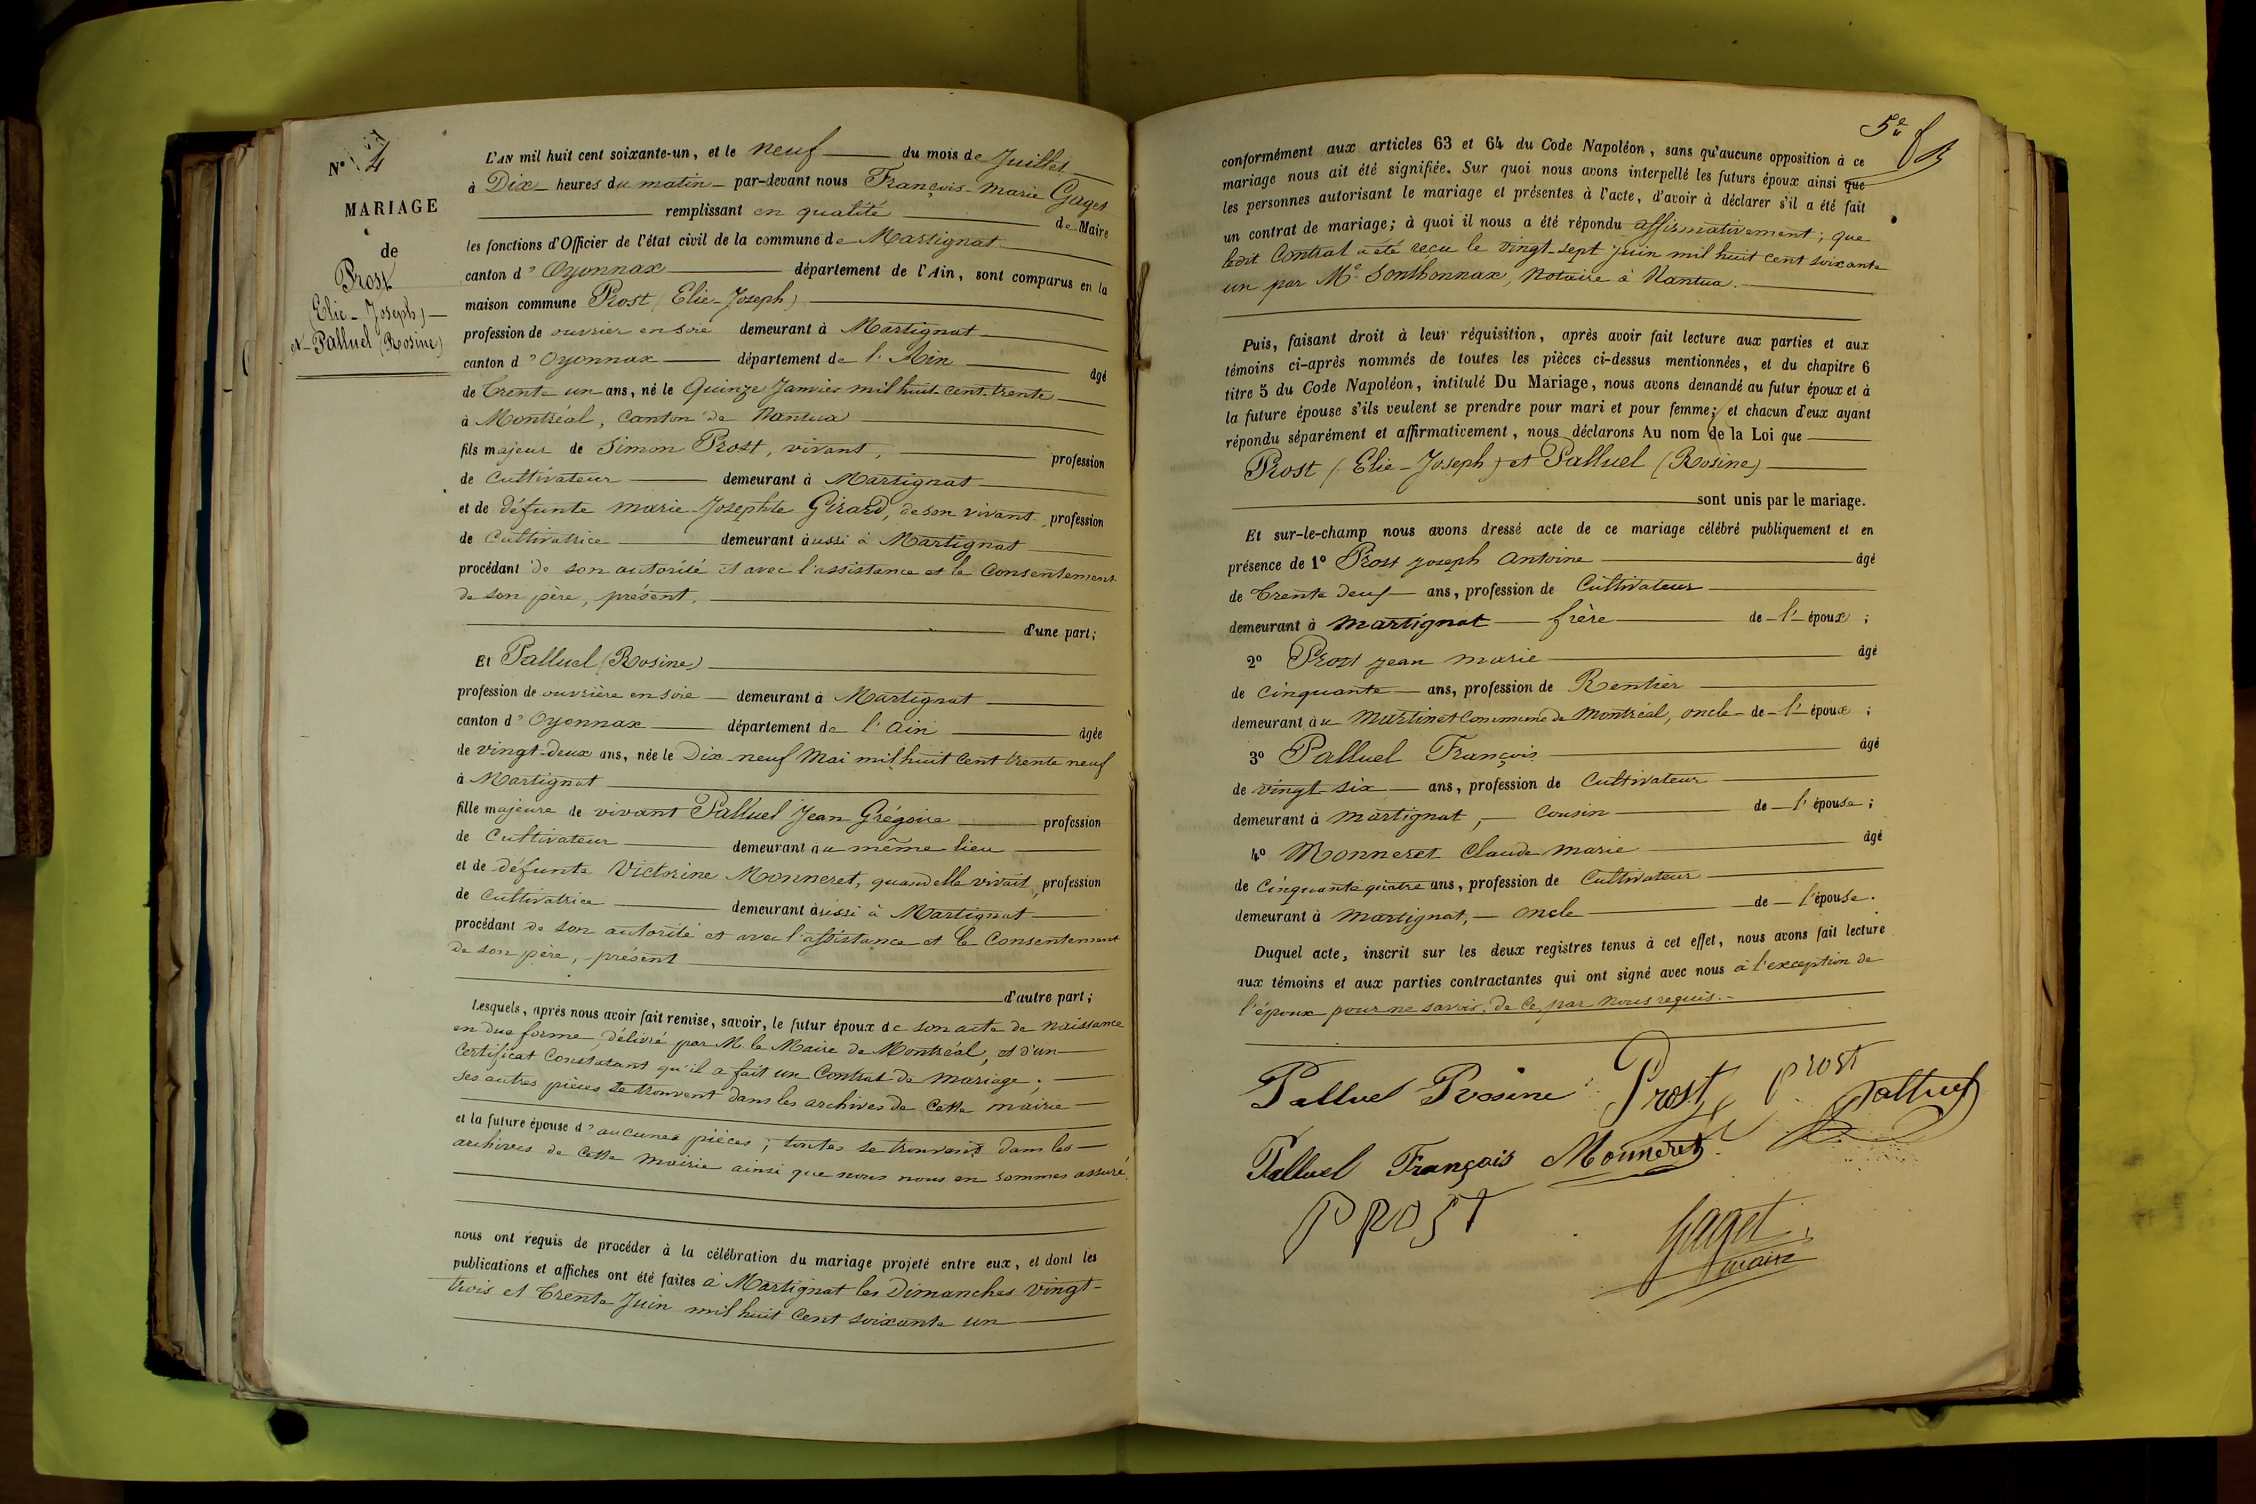 N° 4
MARIAGE
de
Prost
(Elie-Joseph)
et Palluel (Rosine)
L'AN mil huit cent soixante-un, et le neuf du mois de Juillet
à Dix heures du matin par-devant nous François-Marie Gaget
remplissant en qualité de Maire
les fonctions d'Officier de l'état civil de la commune de Martignat
canton d'Oyonnax département de l'Ain, sont comparus en la
maison commune Prost (Elie-Joseph)
profession de ouvrier en soie demeurant à Martignat
canton d'Oyonnax département de l'Ain âgé
de Trente un ans, né le Quinze Janvier mil huit cent trente
à Montréal, Canton de Nantua
fils majeur de Simon Prost, vivant, profession
de Cultivateur demeurant à Martignat
et de défunte Marie-Josephte Girard, de son vivant profession
de Cultivatrice demeurant aussi à Martignat
procédant de son autorité et avec l'assistance et le Consentement
de son père, présent.
d'une part;
Et Palluel (Rosine)
profession de ouvrière en soie demeurant à Martignat
canton d'Oyonnax département de l'Ain âgée
de vingt-deux ans, née le Dix-neuf Mai mil huit Cent trente neuf
à Martignat
fille majeure de vivant Palluel Jean Grégoire profession
de Cultivateur demeurant au même lieu
et de défunte Victorine Monneret, quand elle vivait, profession
de Cultivatrice demeurant aussi à Martignat
procédant de son autorité et avec l'assistance et le Consentement
de son père, présent
d'autre part;
Lesquels, après nous avoir fait remise, savoir, le futur époux de son acte de naissance
en due forme, délivré par M. le Maire de Montréal, et d'un
Certificat Constatant qu'il a fait un Contrat de mariage;
ses autres pièces se trouvent dans les archives de Cette mairie
et la future épouse d'aucunes pièces; toutes se trouvant dans les
archives de Cette Mairie ainsi que nous nous en sommes assuré.
nous ont requis de procéder à la célébration du mariage projeté entre eux, et dont les
publications et affiches ont été faites à Martignat les Dimanches vingt-
trois et Trente Juin mil huit Cent soixante un
5e
conformément aux articles 63 et 64 du Code Napoléon, sans qu'aucune opposition à ce
mariage nous ait été signifiée. Sur quoi nous avons interpellé les futurs époux ainsi que
les personnes autorisant le mariage et présentes à l'acte, d'avoir à déclarer s'il a été fait
un contrat de mariage; à quoi il nous a été répondu affirmativement; que
ledit Contrat a été reçu le vingt-sept juin mil huit cent soixante
un par Me Sonthonnax, Notaire à Nantua.
Puis, faisant droit à leur réquisition, après avoir fait lecture aux parties et aux
témoins ci-après nommés de toutes les pièces ci-dessus mentionnées, et du chapitre 6
titre 5 du Code Napoléon, intitulé Du Mariage, nous avons demandé au futur époux et à
la future épouse s'ils veulent se prendre pour mari et pour femme; et chacun d'eux ayant
répondu séparément et affirmativement, nous déclarons Au nom de la Loi que
Prost (Elie-Joseph) et Palluel (Rosine)
sont unis par le mariage.
Et sur-le-champ nous avons dressé acte de ce mariage célébré publiquement et en
présence de 1° Prost Joseph Antoine âgé
de Trente deux ans, profession de Cultivateur
demeurant à Martignat frère de l'époux;
2° Prost Jean Marie âgé
de Cinquante ans, profession de Rentier
demeurant au Martinet Commune de Montréal, oncle de l'époux;
3° Palluel François âgé
de vingt six ans, profession de Cultivateur
demeurant à Martignat, Cousin de l'épouse;
4° Monneret Claude Marie âgé
de Cinquante quatre ans, profession de Cultivateur
demeurant à Martignat, oncle de l'épouse.
Duquel acte, inscrit sur les deux registres tenus à cet effet, nous avons fait lecture
aux témoins et aux parties contractantes qui ont signé avec nous à l'exception de
l'époux pour ne savoir, de Ce, par Nous requis.
Palluel Rosine Prost Prost
Palluel
Palluel François Monneret
PROST
Gaget
maire